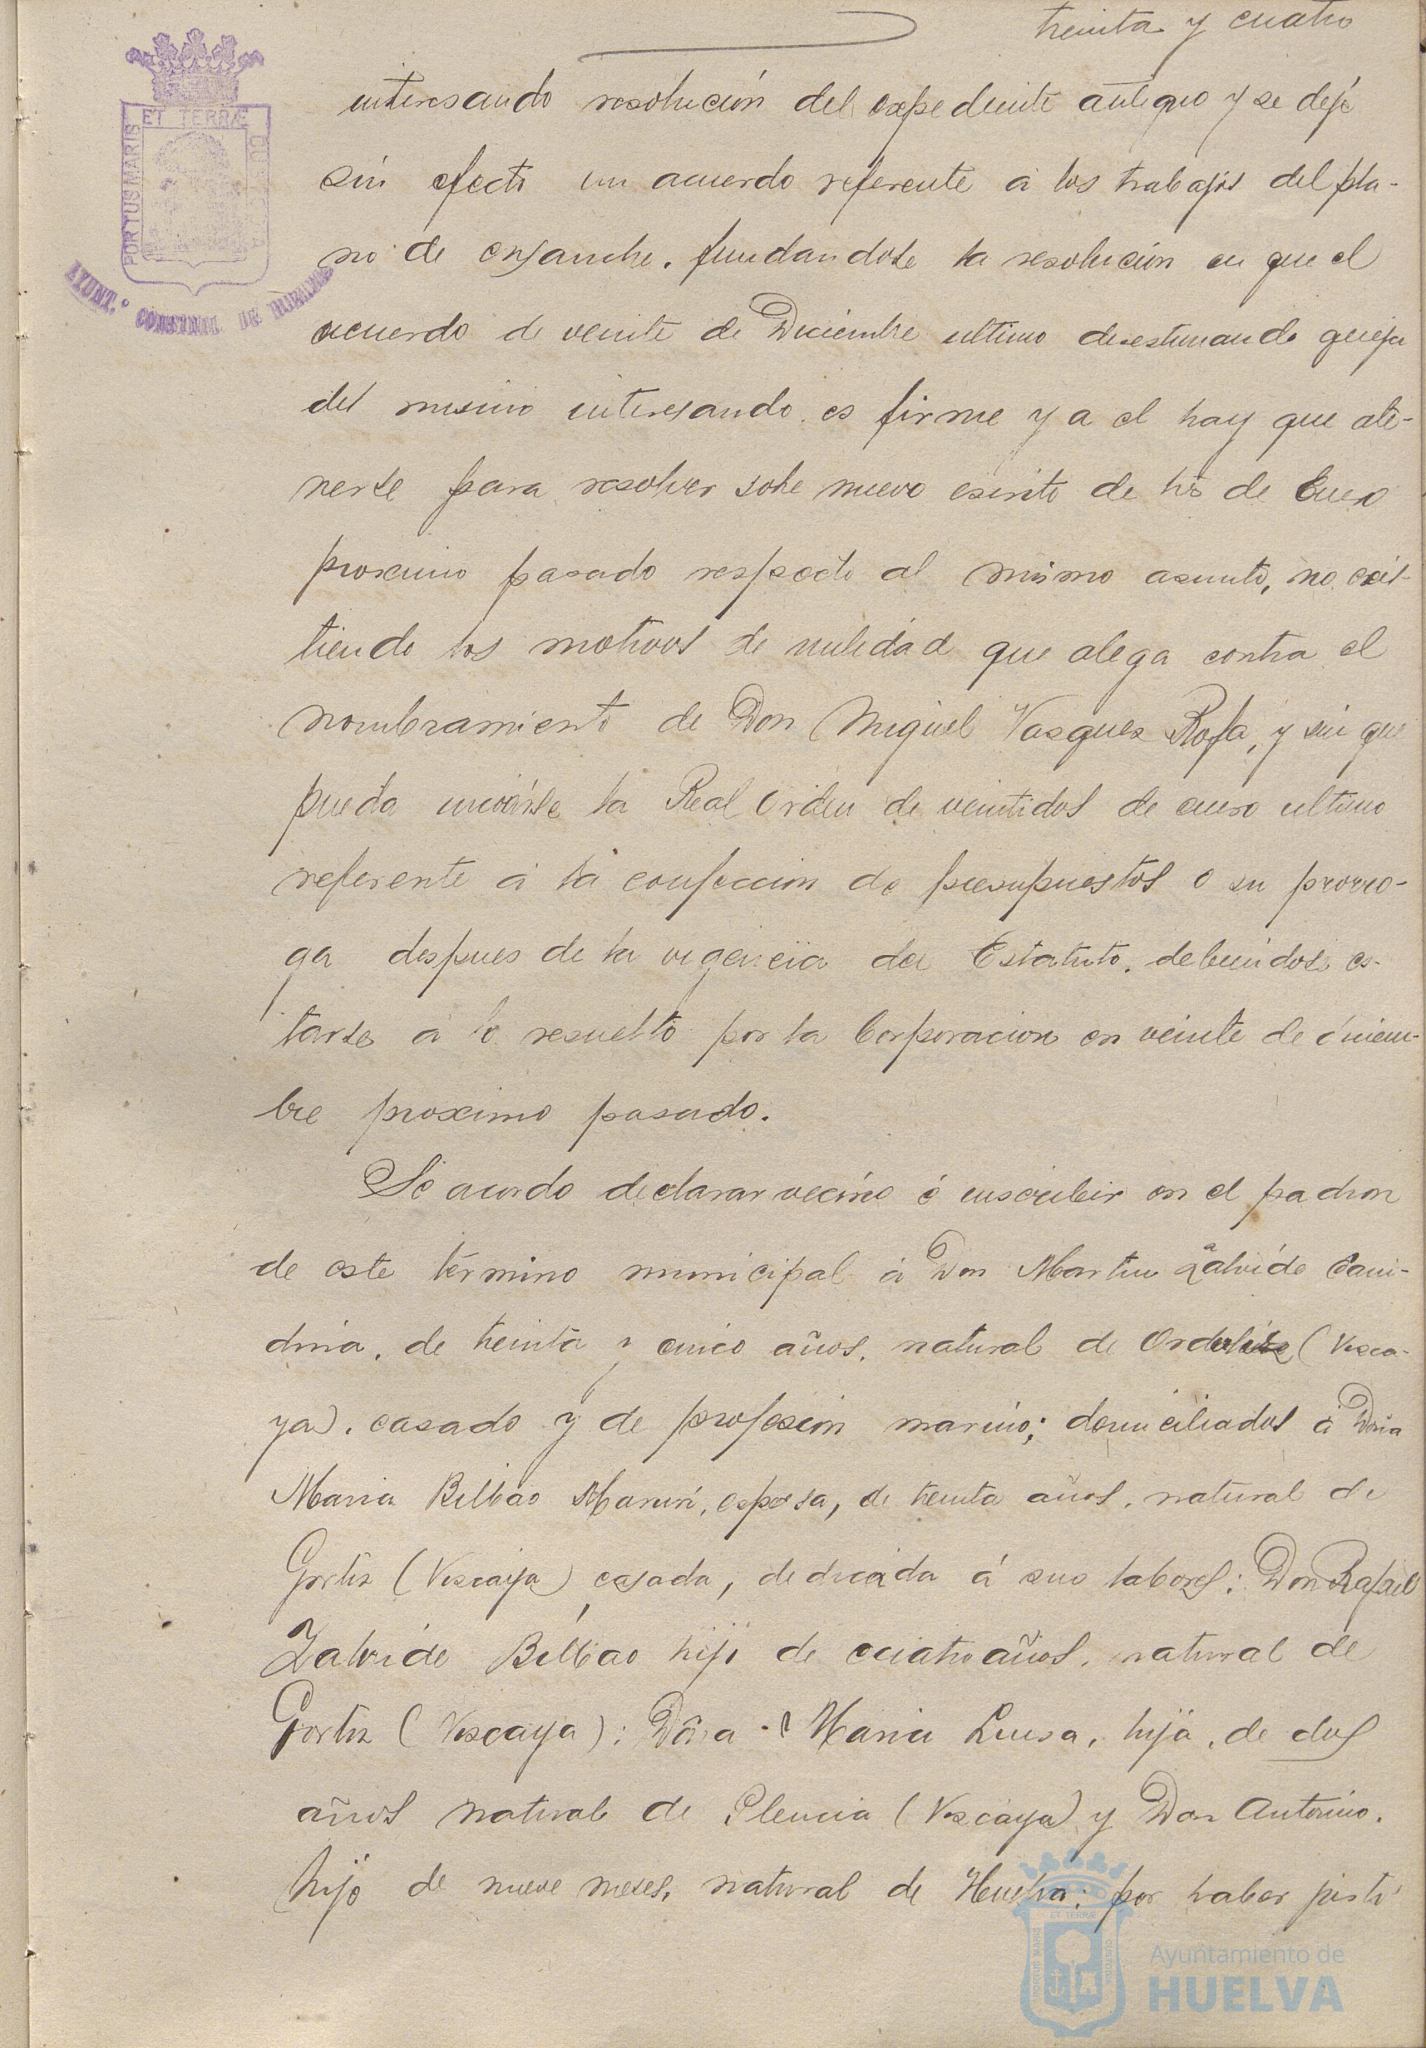 treinta y cuatro
PORTUS MARIS ET TERRÆ CUSTODIA
AYUNT.º CONSTNAL. DE HUELVA
interesando resolución del expediente antiguo y se deje
sin efecto un acuerdo referente á los trabajos del pla-
no de ensanche, fundandose la resolución en que el
acuerdo de veinte de Diciembre ultimo desestimando queja
del mismo interesando es firme y a el hay que ate-
nerse para resolver sobre nuevo escrito de tres de Enero
proximo pasado respecto al mismo asunto, no exis-
tiendo los motivos de nulidad que alega contra el
nombramiento de Don Miguel Vasquez Rofa, y sin que
pueda la Real Orden de veintidos de enero ultimo
referente á la confeccion de presupuestos o su prorro-
ga despues de la vigencia del Estatuto, debiendose es-
tarse á lo resuelto por la Corporacion en veinte de diciem-
bre proximo pasado.
Se acordo declarar vecino é inscribir en el padron
de este término municipal á Don Martin Zalvide
de treinta y cinco años, natural de (Visca-
ya), casado y de profesion marino; domiciliados á Doña
Maria Bilbao Maruri, esposa, de treinta años, natural de
Gorliz (Viscaya) casada, dedicada á sus labores; Don Rafael
Zalvide Bilbao hijo de cuatro años, natural de
Gorliz (Viscaya); Doña Maria Luisa, hija, de dos
años natural de Plencia (Viscaya) y Don Antonino,
hijo de nueve meses, natural de Huelva; por haber justi
Ayuntamiento de
HUELVA